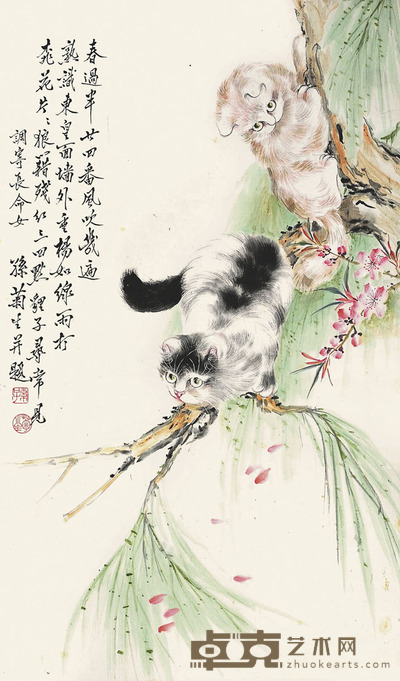 春過半廿四番風吹幾遍
熟識東皇面墻外垂楊如線雨打
桃花片〻狼籍殘紅三四點貍子尋常見
調寄長命女
孫菊生并題
卓克艺术网
zhuokearts.com